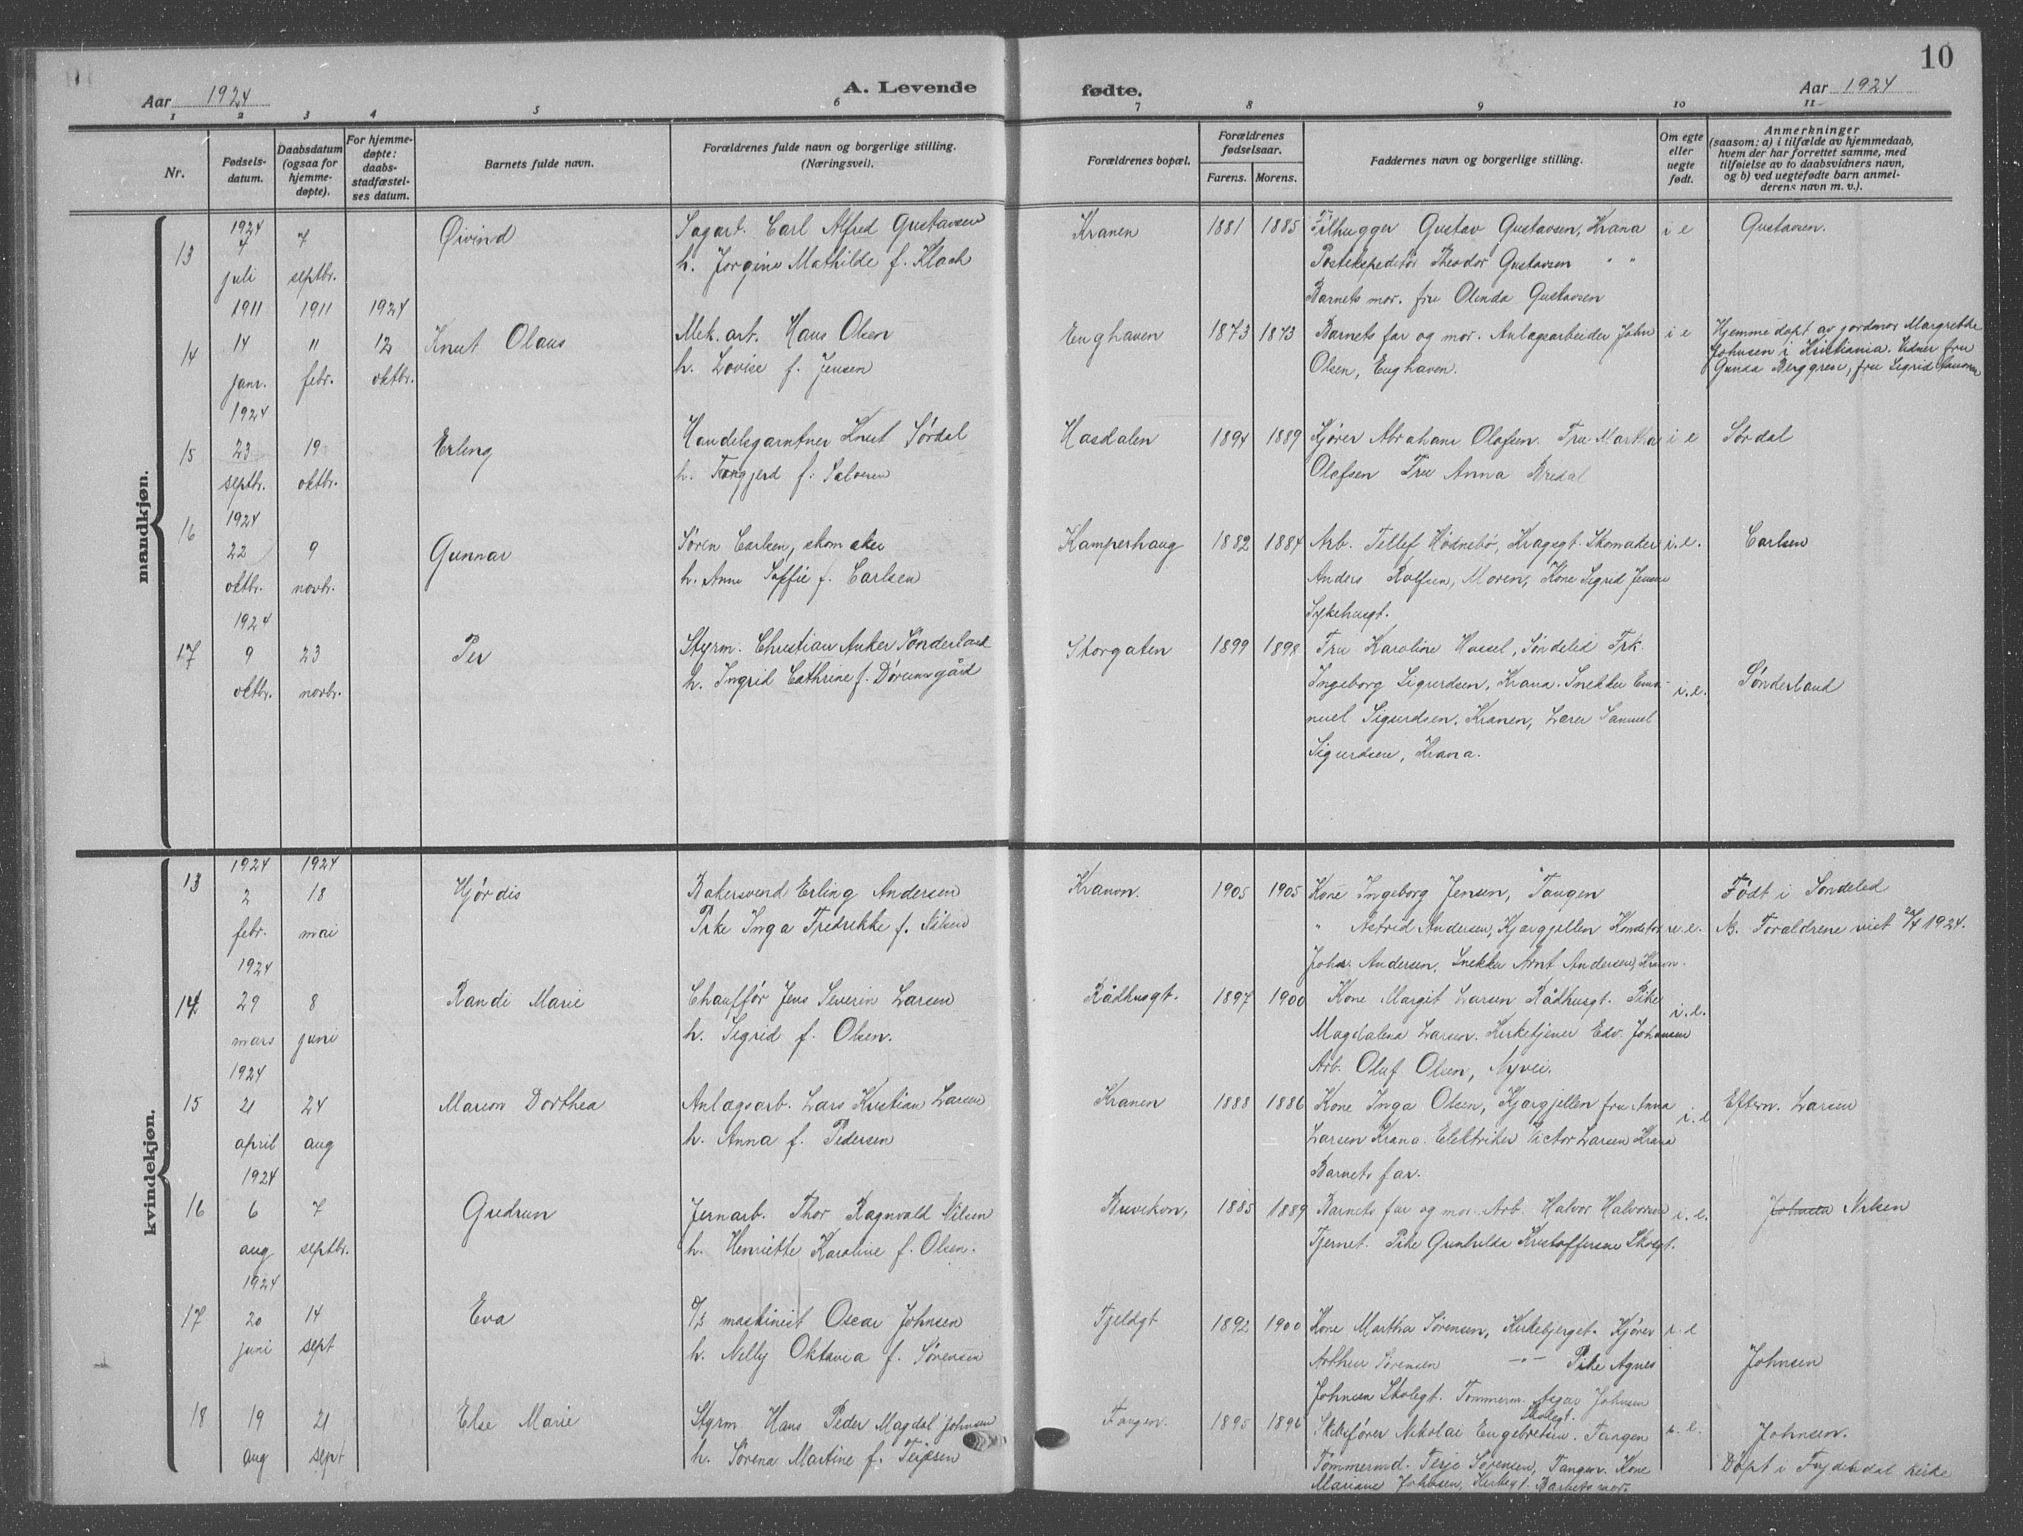 10
Aar 1924
A. Levende
fødte.
Aar 1924
1 2 3 4 5 6 7 8 9 10 11
Nr.
Fødsels-
datum.
Daabsdatum
(ogsaa for
hjemme-
døpte).
For hjemme-
døpte:
daabs-
stadfæstel-
ses datum.
Barnets fulde navn.
Forældrenes fulde navn og borgerlige stilling.
(Næringsvei).
Forældrenes bopæl.
Forældrenes
fødselsaar.
Farens. Morens.
Faddernes navn og borgerlige stilling.
Om egte
eller
uegte
født.
Anmerkninger
(saasom: a) i tilfælde av hjemmedaab,
hvem der har forrettet samme, med
tilføielse av to daabsvidners navn,
og b) ved uegtefødte barn anmel-
derens navn m. v.).
mandkjøn.
13
1924
7
juli
7
septbr.
Øivind
Sagarb. Carl Alfred Gustavsen
h. Jorgine Mathilde f. Klach
Kranen
1881
1885
Tilhugger Gustav Gustavsen, Krana
Postekspeditør Theodor Gustavsen " "
Barnets mor. fru Olinda Gustavsen
i e
Gustavsen.
14
1911
14
janr.
1911
11
febr.
1924
12
oktbr.
Knut Olaus
Mek. arb. Hans Olsen
h. Lovise f. Jensen
Enghaven
1873
1873
Barnets far og mor. Anlagsarbeider John
Olsen, Enghaven.
i e
Hjemmedøpt av jordmor Margrethe
Johnsen i Kristiania. Vidner fru
Gunda Berggren, fru Sigrid
15
1924
23
septbr.
19
oktbr.
Erling
Handelsgartner Knut Sørdal
h. Torgjerd f. Salvesen
Hasdalen
1894
1889
Kjører Abraham Olofsen. Fru Martha
Olofsen Fru Anna Bredal
i e
Sørdal
16
1924
22
oktbr.
9
novbr.
Gunnar
Søren Carlsen, skomaker
h. Anne Soffie f. Carlsen
Kamperhaug
1882
1884
Arb. Tellef Hødnebø, Kragsgt. Skomaker
Anders Rolfsen, Moren, Kone Sigrid Jensen
Sykehusgt.
i. e.
Carlsen
17
1924
9
oktbr.
23
novbr.
Per
Styrm. Christian Anker Sønderland
h. Ingrid Cathrine f. Dørumsgård
Storgaten
1899
1898
Fru Karoline Hassel, Søndeled Frk.
Ingeborg Sigurdsen, Krana. Snekker Ema-
nuel Sigurdsen. Kranen, Lærer Samuel
Sigurdsen, Krana.
i. e.
Sønderland
kvindekjøn.
13
1924
2
febr.
1924
18
mai
Hjørdis
Bakersvend Erling Andersen
Pike Inga Fredrikke f. Nilsen
Kranen.
1905
1905
Kone Ingeborg Jensen, Tangen
" Astrid Andersen, Kjærgjellen Konditor
Johs. Andersen, Snekker Arnt Andersen, Kranen.
u. e.
Født i Søndeled
N. Forældrene viet 1924.
14
1924
29
mars
8
juni
Randi Marie
Chauffør Jens Severin Larsen
h. Sigrid f. Olsen.
Rådhusgt.
1897
1900
Kone Margit Larsen Rådhusgt. Pike
Magdalena Larsen. Kirketjener Edv. Johansen
Arb. Oluf Olsen, Nyvei.
i. e.
15
1924
21
april
24
aug
Marion Dorthea
Anlægsarb. Lars Kristian Larsen
h. Anna f. Pedersen
Kranen
1888
1886
Kone Inga Olsen, Kjærgjellen fru Anna
Larsen Krana. Elektriker Victor Larsen Krana
Barnets far.
i. e
Eftern. Larsen
16
1924
6
aug
7
septbr.
Gudrun
Jernarb. Thor Ragnvald Nilsen
h. Henriette Karoline f. Olsen.
Buvikvn,
1885
1889
Barnets far og mor. Arb. Halvor Halvorsen
Tjernet. Pike Gunhilda Kristoffersen Skolegt.
i. e.
Johnsen Nilsen
17
1924
20
juni
14
sept
Eva
D/S maskinist Oscar Johnsen
h. Nelly Oktavia f. Sørensen
Fjeldgt
1892
1900
Kone Martha Sørensen, Kirkebjerget. Kjører
Arthur Sørensen -"- Pike Agnes
Johnsen Skolegt. Tømmerm. Asgar Johnsen
Skolegt.
i. e
Johnsen
18
19
aug
21
sept
Else Marie
Styrm Hans Peder Magdal Johnsen
h. Sørena Martine f. Terjesen
Tangen
1895
1896
Skibsfører Nikolai Engebretsen. Tangen
Tømmermd. Terje Sørensen, Tangen. Kone
Mariane Johnsen, Kirkegt. Barnets mor.
i. e.
Johnsen.
Døpt i Frydendal kirke